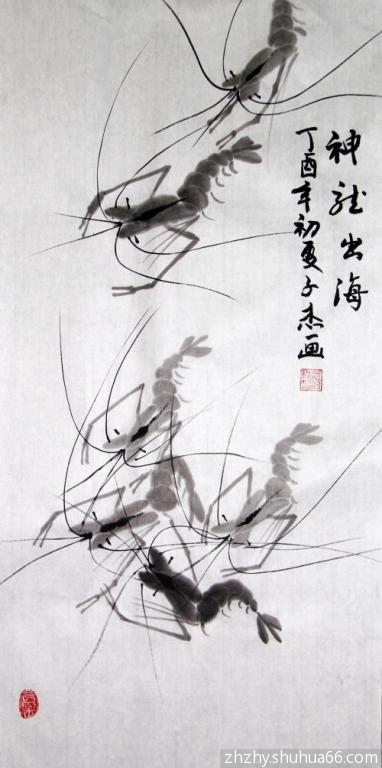 神龙出海
丁酉年初夏子杰画
zhzhy.shuhua66.com